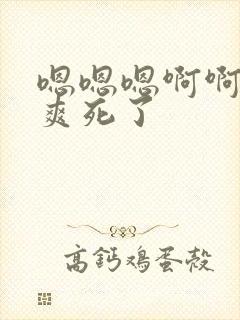 嗯嗯嗯啊啊
爽死了
高钙鸡蛋壳